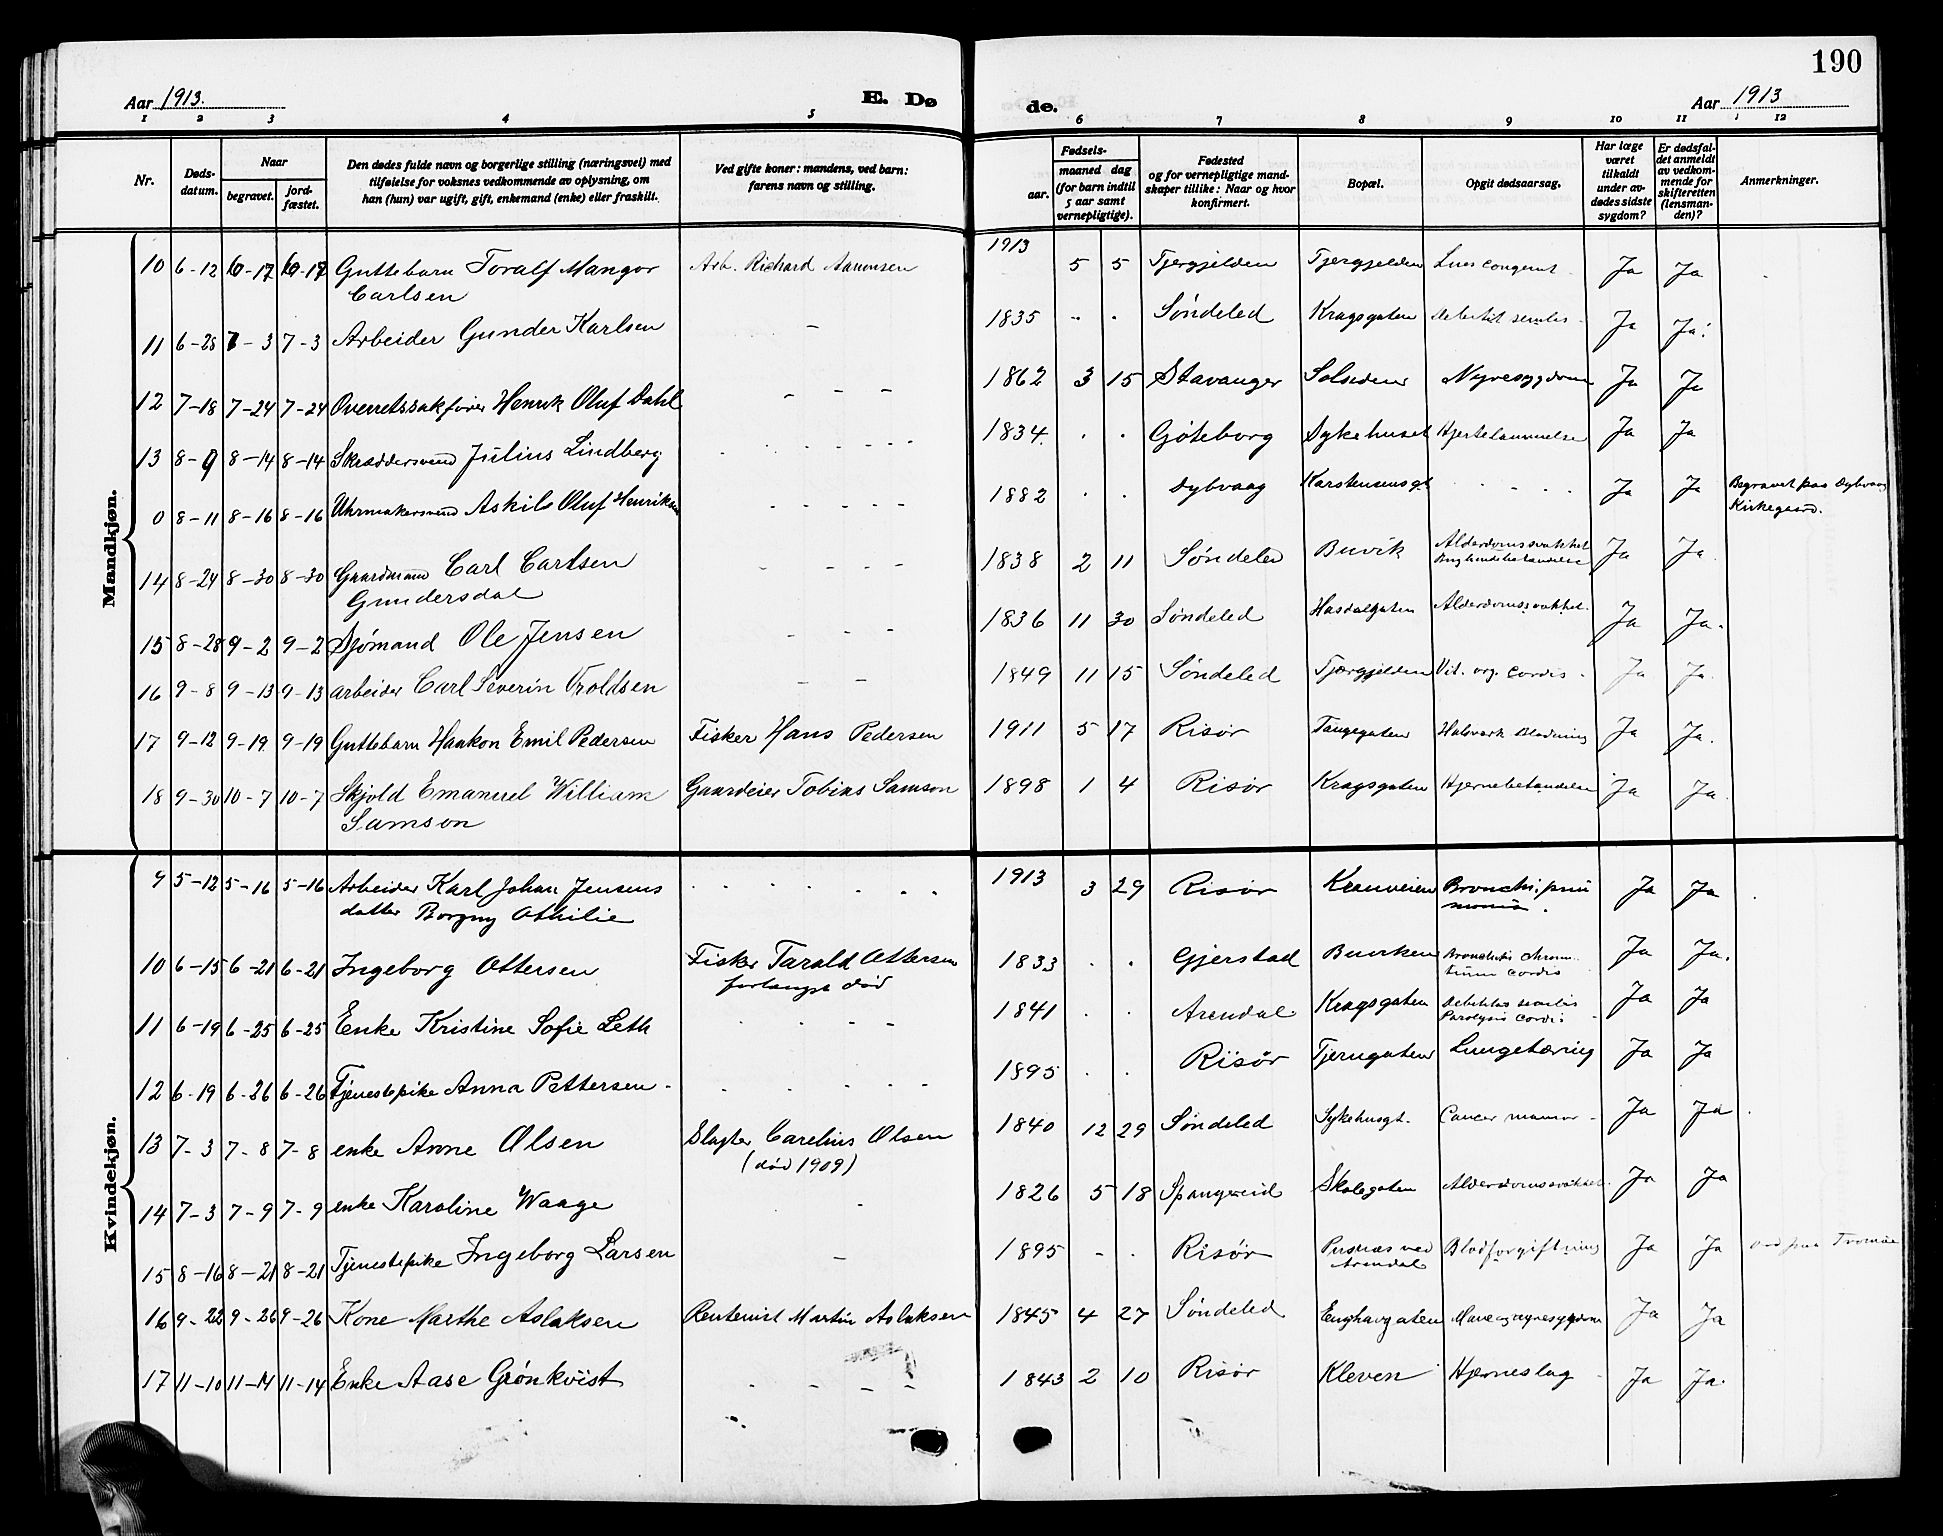 190
Aar 1913. E. Dø de. Aar 1913
1 2 3 4 5 6 7 8 9 10 11 12
Nr.
Døds-
datum.
Naar
begravet. jord-
fæstet.
Den dødes fulde navn og borgerlige stilling (næringsvei) med
tilføielse for voksnes vedkommende av oplysning, om
han (hun) var ugift, gift, enkemand (enke) eller fraskilt.
Ved gifte koner: mandens, ved barn:
farens navn og stilling.
Fødsels-
aar. maaned dag
(for barn indtil
5 aar samt
vernepligtige).
Fødested
og for vernepligtige mand-
skaper tillike: Naar og hvor
konfirmert.
Bopæl.
Opgit dødsaarsag.
Har læge
været
tilkaldt
under av-
dødes sidste
sygdom?
Er dødsfal-
det anmeldt
av vedkom-
mende for
skifteretten
(lensman-
den)?
Anmerkninger.
Mandkjøn.
10 6-12 6-17 6-17 Guttebarn Toralf Mangor Arb. Richard Aanonsen 1913 5 5 Tjergjelden Tjergjelden Lues Ja Ja
Carlsen
11 6-28 7-3 7-3 Arbeider Gunder Karlsen - 1835 - . Søndeled Kragsgaten senilis Ja Ja.
12 7-18 7-24 7-24 Overretssakfører Henrik Oluf Dahl - - - 1862 3 15 Stavanger Solsiden Nyresygdom Ja Ja
13 8-9 8-14 8-14 Skræddersvend Julius Lindberg - - - - 1834. . . Gøteborg Sykehuset Hjertelammelse Ja Ja
0 8-11 8-16 8-16 Uhrmakersvend Askild Oluf Henriksen - - - - - 1882 . . Dybvaag Karstensensgt - - - - Ja Ja Begravet paa Dybvaag
Kirkegaard.
14 8-24 8-30 8-30 Gaardmand Carl Carlsen - - - - 1838 2 11 Søndeled Buvik Alderdomssvakhet Ja Ja
Gundersdal
15 8-28 9-2 9-2 Sjømand Ole Jensen - - - 1836 11 30 Søndeled Hasdalgaten Alderdomssvakhet. Ja Ja.
16 9-8 9-13 9-13 arbeider Carl Severin Troldsen - - - 1849 11 15 Søndeled Tjærgjelden Vit. org. cordis. Ja Ja.
17 9-12 9-19 9-19 Guttebarn Haakon Emil Pedersen Fisker Hans Pedersen 1911 5 17 Risør Tangegaten Blødning Ja Ja.
18 9-30 10-7 10-7 Skjold Emanuel William Gaardeier Tobias Samson 1898 1 4 Risør Kragsgaten Hjernebetændelse Ja Ja
Samson
Kvindekjøn.
9 5-12 5-16 5-16 Arbeider Karl Johan Jensens - - - - - - 1913 3 29 Risør Kranveien Bronchi. pnu Ja Ja
datter Borgny Othilie monia.
10 6-15 6-21 6-21 Ingeborg Ottersen Fisker Tarald Ottersen 1833 . . Gjerstad Buviken Ja Ja.
forlængst død cordis
11 6-19 6-25 6-25 Enke Kristine Sofie Leth - - - - 1841 . . Arendal Kragsgaten Debilitas senilis Ja Ja
Paralysis cordis
12 6-19 6-26 6-26 Tjenestepike Anna Pettersen - - - - - - 1895 . . Risør Tjerngaten Lungetæring Ja Ja
13 7-3 7-8 7-8 enke Anne Olsen Slagter Carelius Olsen 1840 12 29 Søndeled Sykehusgt. Cancer mamar - Ja Ja
(død 1909)
14 7-3 7-9 7-9 enke Karoline Waage - 1826 5 18 Spangereid Skolegaten Alderdomssvakhet. Ja Ja
15 8-16 8-21 8-21 Tjenestepike Ingeborg Larsen - 1895 - . Risør Pusnæs ved Blodforgiftning Ja Ja Tromøe
Arendal
16 9-22 9-26 9-26 Kone Marthe Aslaksen Rentenist Martin Aslaksen 1845 4 27 Søndeled Enghavgaten Mave og nyresygdom Ja Ja
17 11-10 11-14 11-14 Enke Aase Grønkvist - - - - 1843 2 10 Risør Kleven Hjerneslag Ja Ja.